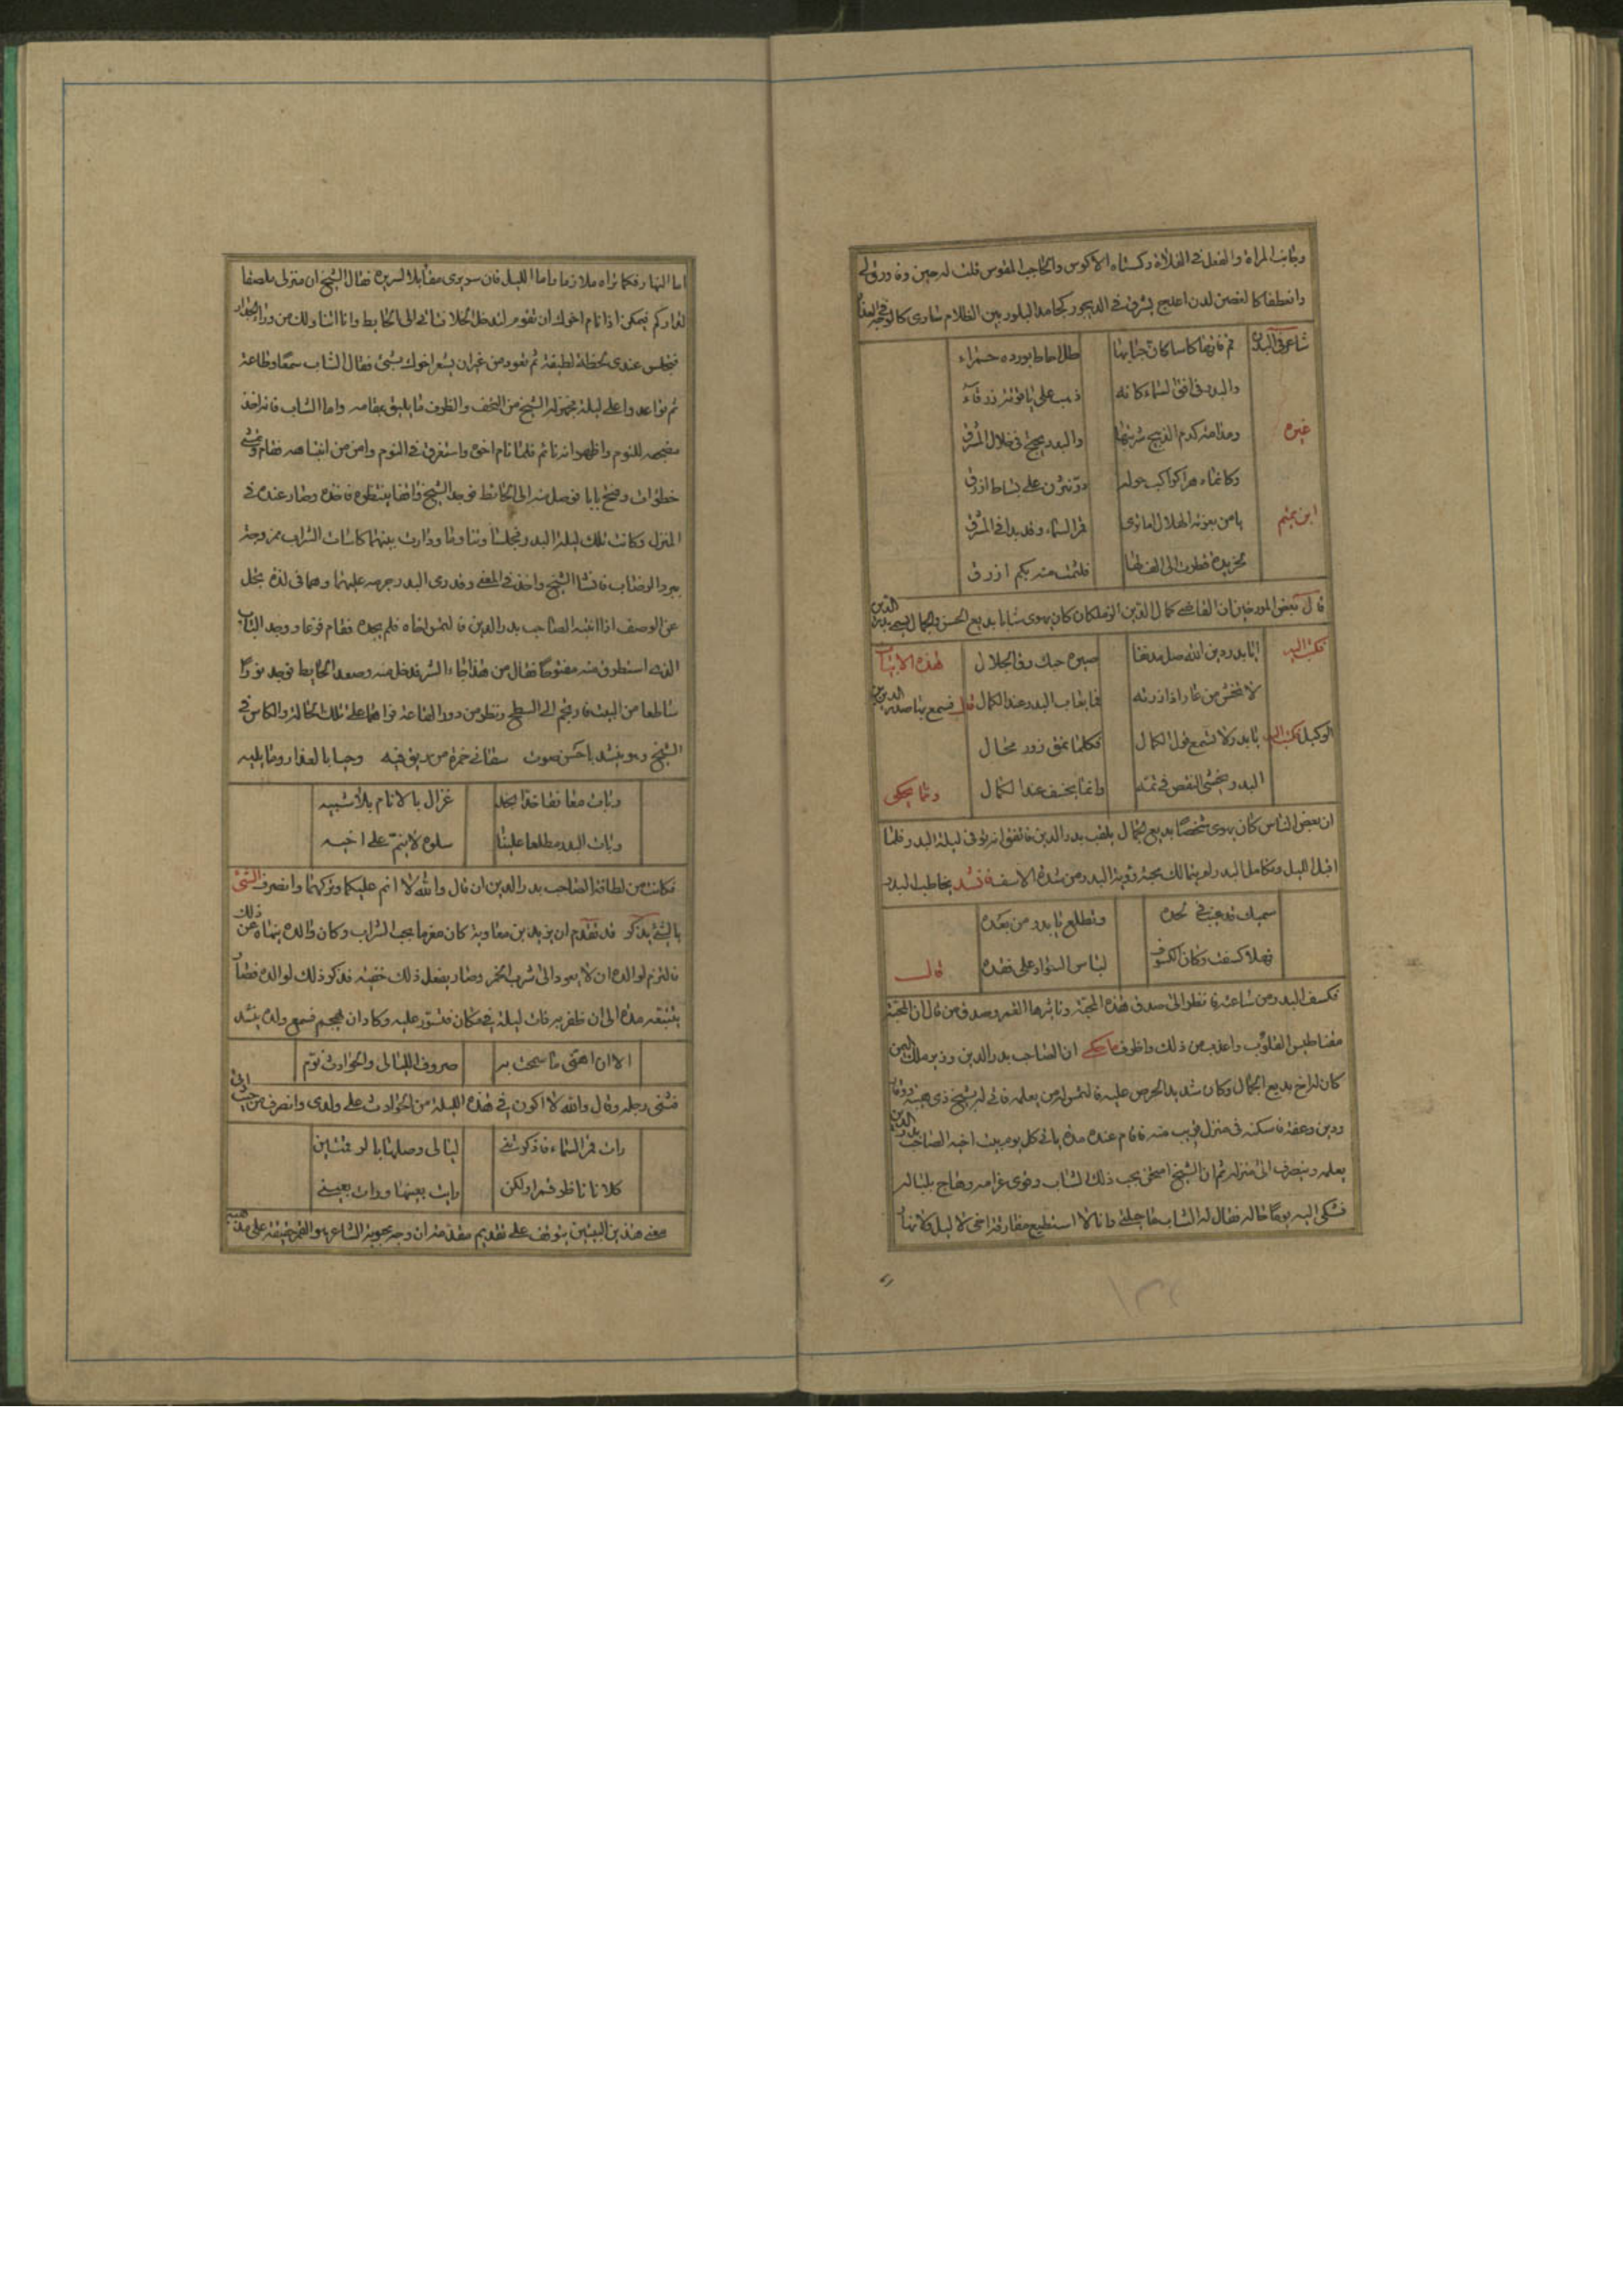 وجانب المراة والفعل في الفلاة وكسناه الاكوس والحاجب المقوس قلت له حين
وانعطفا كالغصن لدن اعلج يشرق في الديجور كجامد البلور بين الظلام ساري
شاعر في البدر قم فاتها كاسا كان حبابها طل احاط بوردة حمراء
والبدر في افق السماء كانه ذهب على ياقوتة زرقاء
غيره ومدامة كدم الذبيح شربتها والبدر يجنح في خلال المشرق
وكانما زهر الكواكب حوله درر نثرن على بساط ازرق
ابن تميم يا من بعزته الهلال اما ترى قمر السماء وقد بدا في المشرق
كخريدة نظرت الى الف لها فلثمت منه بكم ازرق
قال بعض المورخين ان القاضي كمال الدين الزملكان كان يهوى شابا بديع الحسن والجمال يسمى بدر الدين
فكتب اليه ايا بدر دين الله صل مدنفا صيره حبك رق الخلال هذه الابيات
لا تخش من عار اذا زرته فما يعاب البدر عند الكمال قال فسمع بها صدر الدين بن
الوكيل فكتب اليه يا بدر لا تسمع قول الكمال فكلما نمق زور محال
البدر يخشى النقص في تمه وانما يخسف عند الكمال ومما يحكى
ان بعض الناس كان يهوى شخصا بديع الجمال يلقب بدر الدين فاتفق انه توفى ليلة البدر فلما
اقبل الليل وتكامل البدر لم يتمالك محبه رؤية البدر ومن شدة الاسف انشد يخاطب البدر
سميك قد غيب في لحده وتطلع يا بدر من بعده
فهلا كسفت وكان الكسوف لباس السواد على فقده قال
فكسف البدر من ساعته فانظر الى صدق هذه المحبة وتاثيرها القمر وصدق من قال ان المحبة
مغناطيس القلوب واعذب من ذلك واظرف ما حكى ان الصاحب بدر الدين وزير ملك اليمن
كان له اخ بديع الجمال وكان شديد الحرص عليه فالتمس له من يعلمه فاتى له بشيخ ذي هيبة ووقار
ودين وعفة فاسكنه في منزل قريب منه فاقام عنده مدة ياتي كل يوم بيت اخيه الصاحب بدر الدين
يعلمه وينصرف الى منزله ثم ان الشيخ امتحن بحب ذلك الشاب وقوى غرامه وهاج بلباله
فشكى اليه يوما حاله فقال له الشاب ما حيلتي وانا لا استطيع مفارقة اخي لا ليلا ولا نهارا
اما النهار فكما تراه ملازما واما الليل فان سريرى مقابلا لسريره فقال الشيخ ان منزلى ملصقا
لداركم فيمكن اذا نام اخوك ان تقوم لتدخل الخلا فتاتي الى الحايط وانا اتناولك من وراء الجدار
فتجلس عندى لحظة لطيفة ثم تعود من غير ان يشعر اخوك بشئ فقال الشاب سمعا وطاعة
ثم تواعدوا على ليلة فجهز له الشيخ من التحف والظرف ما يليق بمقامه واما الشاب فانه اخذ
مضجعه للنوم واظهر انه نائم فلما نام اخوه واستغرق في النوم وامن من انتباهه فقام ومشى
خطوات وفتح بابا توصل منه الى الحائط فوجد الشيخ واقفا ينتظره فاخذه وصار عنده في
المنزل وكانت تلك ليلة البدر فجلسا وتنادما ودارت بينهما كاسات الشراب ممزوجة
ببرد الرضاب فانشا الشيخ واخذ في المغنى وقد رمى البدر جرمه عليهما وهما في لذة تجل
عن الوصف اذا انتبه الصاحب بدر الدين فالتمس اخاه فلم يجده فقام فزعا ووجد الباب
الذي استطرق منه مفتوحا فقال من هذا جاء الشر فدخل منه وصعد الحايط فوجد نورا
ساطعا من البيت فارتجم الى السطح ونظر من دور القاعة فراهما على تلك الحالة والكاس في
الشيخ وهو ينشد باحسن صوت سقاني خمرة من ريق فيه وحيا بالعذار وما يليه
وبات معانقا خدا بخد غزال بالانام بلا شبيه
وبات البدر مطلعا علينا سلوه لا ينم على اخيه
فكان من لطافة الصاحب بدر الدين ان قال والله لا انم عليكما وتركهما وانصرف الشئ
بالشئ يذكر قد تقدم ان يزيد بن معاوية كان مغرما بحب الشراب وكان والده ينهاه عن ذلك
فالتزم لوالده ان لا يعود الى شرب الخمر وصار يفعل ذلك خفية فذكر ذلك لوالده فصار
يتتبعه مدة الى ان ظفر به ذات ليلة في مكان فتسور عليه وكاد ان يهجم فسمع ولده ينشد
الا ان اهنى ما سمحت به صروف الليالى والحوادث نوم
فثنى رجله وقال والله لا اكون في هذه الليلة من الحوادث على ولدى وانصرف من حيث اتى
رات قمر السماء فاذكرتني ليالى وصلها بالرقمتين
كلانا ناظر قمرا ولكن رايت بعينها ورات بعيني
معنى هذين البيتين يتوقف على تقديم مقدمة ان وجه محبوبة الشاعر هو القمر حقيقة على